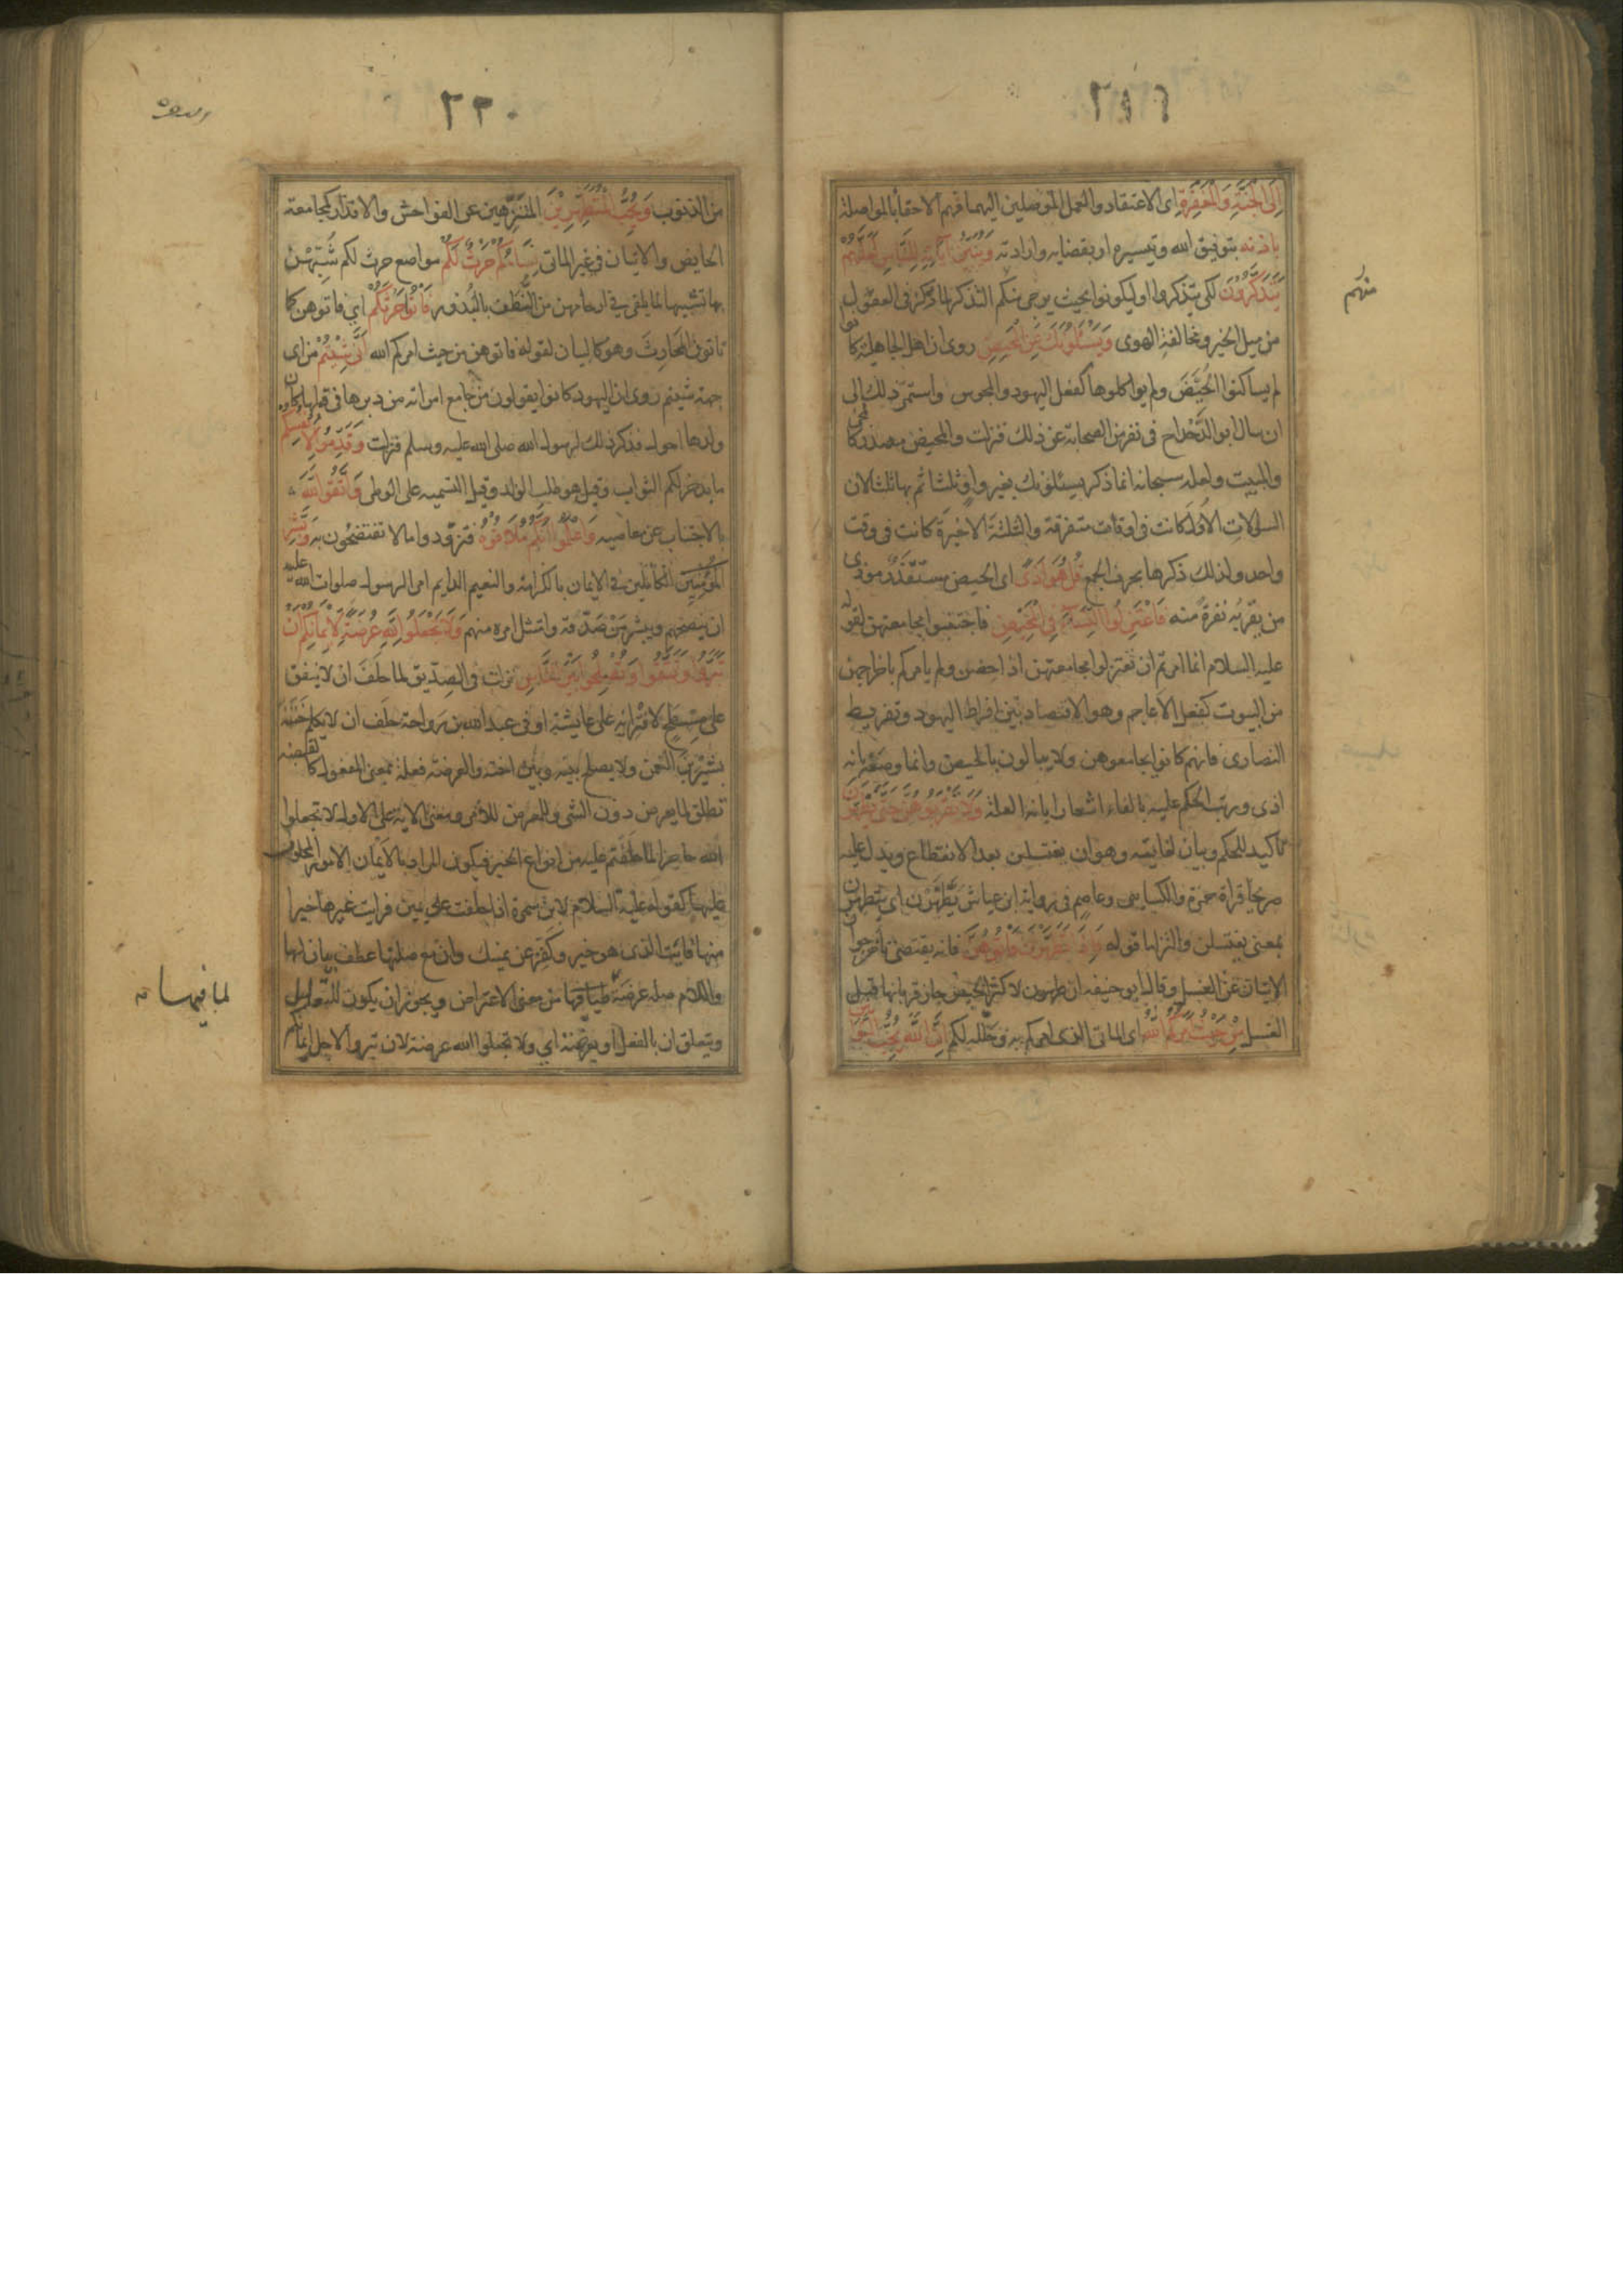 ٢١٩
إِلَى الْجَنَّةِ وَالْمَغْفِرَةِ اى الاعتقاد والعمل الموصلين اليهما فهم الاحقا بالمواصلة
باذنه بتوفيق الله وتيسيره او بقضايه وارادته وَيُبَيِّنُ آيَاتِهِ لِلنَّاسِ لَعَلَّهُمْ
يَتَذَكَّرُونَ لكى يتذكروا او ليكونوا بحيث يرجى منكم التذكر لما ركز فى العقول
منهم
من ميل الخير ومخالفة الهوى وَيَسْئَلُونَكَ عَنِ الْمَحِيضِ روى ان اهل الجاهلية كانوا
لم يساكنوا الحُيَّضَ ولم يواكلوها كفعل اليهود والمجوس واستمر ذلك الى
ان سال ابو الدَّحْدَاح فى نفر من الصحابة عن ذلك فنزلت والمحيض مصدر كالمجئ
والمبيت ولعله سبحانه انما ذكر يسئلونك بغير واو ثلثا ثم بها ثلثا لان
السوالات الاُوَل كانت فى اوقات متفرقة والثلثة الاخيرة كانت فى وقت
واحد ولذلك ذكرها بحرف الجمع قُلْ هُوَ اَذًى اى الحيض مستقذر موذى
من يقربه نفرة منه فَاعْتَزِلُوا النِّسَآءَ فِى الْمَحِيضِ فاجتنبوا مجامعتهن لقوله
عليه السلام انما امرتم ان تعتزلوا مجامعتهن اذا حضن ولم يامركم باخراجهن
من البيوت كفعل الاعاجم وهو الاقتصاد بين افراط اليهود وتفريط
النصارى فانهم كانوا يجامعوهن ولا يبالون بالحيض وانما وصفه بانه
اذى ورتب الحكم عليه بالفاء اشعارا بانه العلة وَلَا تَقْرَبُوهُنَّ حَتَّى يَطْهُرْنَ
تاكيد للحكم وبيان لغايته وهو ان يغتسلن بعد الانقطاع ويدل عليه
صريحا قراة حمزة والكسايى وعاصم فى رواية ابن عياش يَطَّهَّرْنَ اى يتطهرن
بمعنى يغتسلن والتزاما قوله فَاِذَا تَطَهَّرْنَ فَأْتُوهُنَّ فانه يقتضى تاخر جواز
الاتيان عن الغسل وقال ابو حنيفه ان طهرن لاكثر الحيض جاز قربانها قبل
الغسل مِنْ حَيْثُ اَمَرَكُمُ اللهُ اى الماتى الذى امركم به وحلله لكم اِنَّ اللهَ يُحِبُّ التَّوَّابِينَ
٢٢٠
من الذنوب وَيُحِبُّ الْمُتَطَهِّرِيْنَ المتنزّهين عن الفواحش والاقذار كمجامعة
الحايض والاتيان فى غير الماتى نِسَاؤُكُمْ حَرْثٌ لَكُمْ مواضع حرث لكم شَبَّهَهُنّ
بها تشبيها لما يلقى فى ارحامهن من النُّطَف بالبُذُور فَأْتُوا حَرْثَكُمْ اى فاتوهن كما
تاتون المحارث وهو كالبيان لقوله فاتوهن من حيث امركم الله اَنَّى شِئْتُمْ من اى
جهة شيتم روى ان اليهود كانوا يقولون من جامع امراته من دبرها فى قبلها كان
ولدها احول فذكر ذلك لرسول الله صلى الله عليه وسلم فنزلت وَقَدِّمُوا لِاَنْفُسِكُمْ
ما يدخر لكم الثواب وقيل هو طلب الولد وقيل التسميه على الوطى وَاتَّقُوا اللهَ
بالاجتناب عن معاصيه وَاعْلَمُوا اَنَّكُمْ مُلَاقُوهُ فتزودوا ما لا تفتضحون به وَبَشِّرِ
الْمُؤْمِنِينَ الكاملين فى الايمان بالكرامة والنعيم الدايم امر الرسول صلوات الله عليه
ان ينصحهم ويبشر مَنْ صَدَّقه وامتثل امره منهم وَلَا تَجْعَلُوا اللهَ عُرْضَةً لِاَيْمَانِكُمْ اَنْ
تَبَرُّوا وَتَتَّقُوا وَتُصْلِحُوا بَيْنَ النَّاسِ نزلت فى الصديق لما حلف ان لا ينفق
على مِسْطَحٍ لافترايه على عايشة او فى عبد الله بن رواحة حلف ان لا يكلم ختنه
بشير بن النعمن ولا يصلح بينه وبين اخته والعرضة فعلة بمعنى المفعول كالقبضه
تطلق لما يعرض دون الشى وللمعرض للامر ومعنى الاية على الاول لا تجعلوا
الله حاجزا لما حلفتم عليه من انواع الخير فيكون المراد بالايمان الامور المحلوف
عليها كقوله عليه السلام لابن سمرة اذا حلفت على يمين فرايت غيرها خيرا
منها فات الذى هو خير وكفر عن يمينك وان مع صلتها عطف بيان لها
واللام صلة عرضة لما فيها من معنى الاعتراض ويجوز ان يكون للتعليل
لما فيها
ويتعلق ان بالفعل او بعرضة اى ولا تجعلوا الله عرضة لان تبروا لاجل ايمانكم